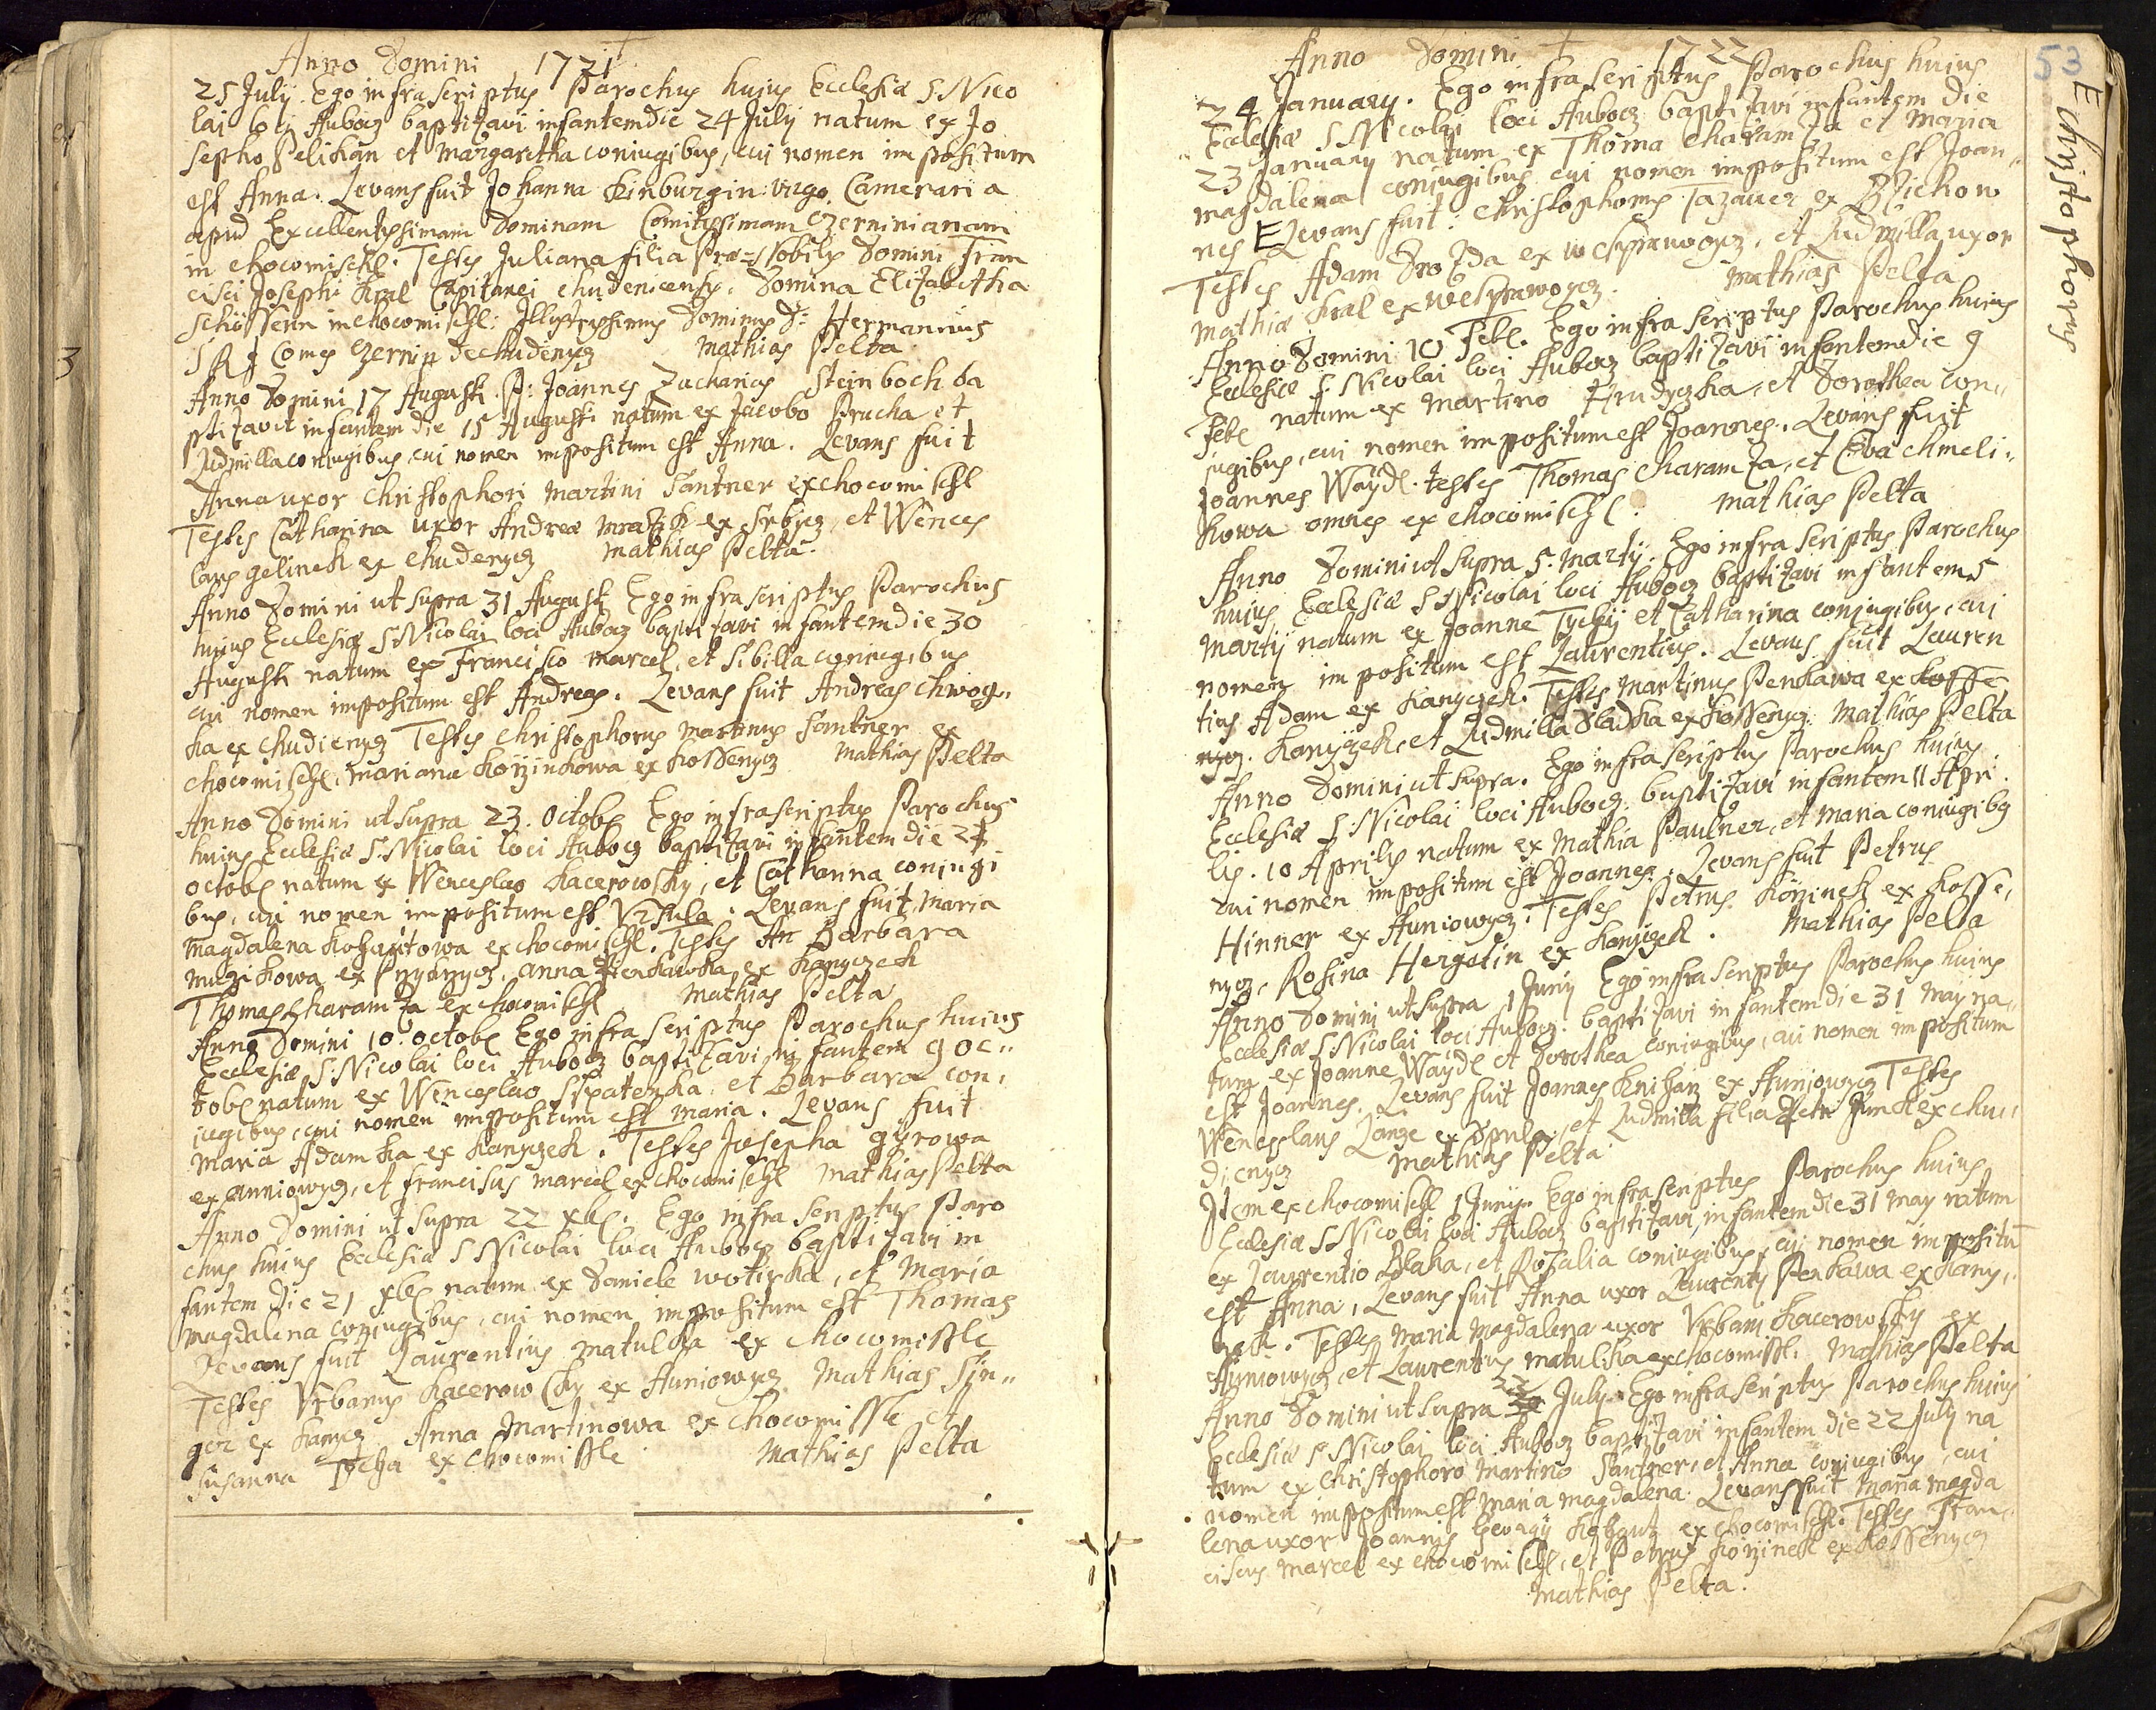 Anno Domini 1721
25 July. Ego infra scriptus Parochus hujus Ecclesiæ S Nico
lai loci Aubocz baptizavi infantem die 24 July natum ex Jo
sepho Pelikan et Margaretha coniugibus, cui nomen impositum
est Anna. Levans fuit Johanna Kinburgin: virgo Cameraria
apud Excellentissimam Dominam Comitissimam Czerninianam
in chocomischl. Testes Juliana filia Præ=Nobilis Domini Fran
cisci Josephi Kral Capitanei chudenicensis. Domina Elizabetha
in chocomischl: Illustrissimus Dominus D: Hermannus
S R J Comes Czernin de chudenycz Mathias Pelta
3
Anno Domini 17 Augusti. P: Joannes Zacharias Steinboch ba
ptizavit infantem die 15 Augusti natum ex Jacobo Prucha et
Ludmilla coniugibus, cui nomen impositum est Anna. Levans fuit
Anna uxor Christophori Martini Santner ex chocomischl
Testes Catharina uxor Andreæ mrazik ex Srbycz, et Wences
laus gelinek ex chudenycz Mathias Pelta.
Anno Domini ut supra 31 Augusti Ego infra scriptus Parochus
huius Ecclesiæ S Nicolai loci Auboz baptizavi infantem die 30
Augusti natum ex Francisco marcel, et Sibilla coniugibus
cui nomen impositum est Andreas. Levans fuit Andreas chwog,,
ka ex chudienycz Testes christophorus Martinus Santner ex
chocomischl, Mariana Korzinkowa ex Kossenycz Mathias Pelta
Anno Domini ut supra 23. Octobr Ego infra scriptus Parochus
huius Ecclesiæ S: Nicolai loci Auboz baptizavi infantem die 21
octobr natum ex Wenceslao Kacerowsky, et Catharina coniugi
bus, cui nomen impositum est Vrsula. Levans fuit Maria
Magdalena Kohautowa ex chocomischl. Testes An Barbara
ex anna Penkawka ex Kanyczek
Thomas charamza ex chocomischl Mathias Pelta
Anno Domini 10. octobr Ego infra scriptus Parochus huius
Ecclesiæ S: Nicolai loci Auboz baptizavi infantem 9 oc,,
tobr natum ex Wenceslao et Barbara con,
iugibus, cui nomen impositum est Maria. Levans fuit
Maria Adamka ex Kanyczek. Testes Josepha gyrowa
ex aunniowycz, et franciscus marcel ex chocomischl Mathias Pelta
Anno Domini ut supra 22 xbr. Ego infra scriptus Paro
chus huius Ecclesiæ S Nicolai loci Auboz baptizavi in
fantem die 21 xbr natum ex Daniele wotipka, et Maria
Magdalena coniugibus, cui nomen impositum est Thomas
Levans fuit Laurentius Matulka ex chocomissle
Testes Vrbanus Kacerowsky ex Auniowycz Mathias Sin,,
ger ex Kanycz Anna Martinowa ex chocomissle et
Susanna ex chocomissle Mathias Pelta
Anno Domini 1722
53
24 January. Ego infra scriptus Parochus huius
Ecclesiæ S Nicolai loci Auboz baptizavi infantem die
23 January natum ex Thoma charamza et Maria
Magdalena coniugibus cui nomen impositum est Joan,,
nes E Levans fuit: christophorus Tazauer ex
E christophorus
Testes Adam Drozda ex wesprawowycz, et Ludmilla uxor
Mathiæ Kral ex wesprawowycz. Mathias Pelta
Anno Domini 10 Febr. Ego infra scriptus Parochus huius
Ecclesiæ S Nicolai loci Auboz baptizavi infantem die 9
Febr natum ex Martino Hrudyczka, et Dorothea con,,
jugibus, cui nomen impositum est Joannes. Levans fuit
Joannes Waydl. testes Thomas charamza, et Eva chmeli,,
kowa omnes ex chocomischl. Mathias Pelta
Anno Domini ut supra 5. Martij. Ego infra scriptus Parochus
huius Ecclesiæ S Nicolai loci Auboz baptizavi infantem 5
Martij natum ex Joanne Tychy et Catharina coniugibus, cui
nomen impositum est Laurentius. Levans fuit Lauren
tius Adam ex Kanyczek. Testes Martinus Penkawa ex
Kanyczek, et Ludmilla Sladka ex Kossenycz Mathias Pelta
Anno Domini ut supra. Ego infra scriptus Parochus huius
Ecclesiæ S: Nicolai loci Auboz. baptizavi infantem 11 Apri
lis. 10 Aprilis natum ex Mathia Paulner, et Maria coniugibus
cui nomen impositum est Joannes. Levans fuit Petrus
Hinner ex Auniowycz. Testes Petrus Korzinek ex Kosse,
nycz, Rosina Hergotin ex Kanyczek. Mathias Pelta
Anno Domini ut supra 1 Juny Ego infra scriptus Parochus huius
Ecclesiæ S Nicolai loci Auboz. baptizavi infantem die 31 May na,,
tum ex Joanne Waydl et Dorothea coniugibus, cui nomen impositum
est Joannes. Levans fuit Joannes Knizan ex Auniowycz Testes
Wenceslaus Lange ex et Ludmilla filia Petri ex chu,,
dienycz Mathias Pelta
Item ex chocomischl 1 Juny. Ego infra scriptus Parochus huius
Ecclesiæ S Nicolai loci Auboz baptizavi infantem die 31 May natum
ex Laurentio Blaha, et Rozalia coniugibus, cui nomen impositū
est Anna, Levans fuit Anna uxor Laurenty Penkawa ex Kany,,
czek. Testes Maria Magdalena uxor Vrbani Kacerowsky ex
Auniowycz, et Laurentius Matulka ex chocomissl. Mathias Pelta
Anno Domini ut supra 23 July. Ego infra scriptus Parochus huius
Ecclesiæ S Nicolai loci Auboz baptizavi infantem die 22 July na
tum ex christophoro Martino Santner, et Anna coniugibus, cui
nomen impositum est Maria Magdalena. Levans fuit Maria Magda
lena uxor Joannis Georgy Kohaut ex chocomischl. Testes Fran,,
ciscus Marcel ex chocomischl, et Petrus Korzinek ex Kossenycz
Mathias Pelta.